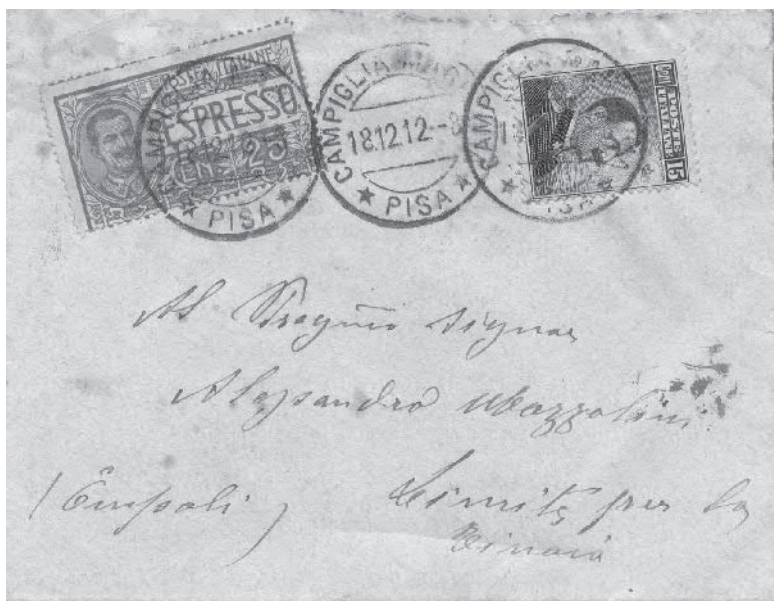 POSTE ITALIANE
ESPRESSO
CENT. 25
PISA
CAMPIGLIA MAR
18.12.12-8
PISA
CAMPIGLIA
PISA
POSTE
ITALIANE
15
Al Pregmo Signor
Alessandro Mazzolini
(Empoli) Limite per la